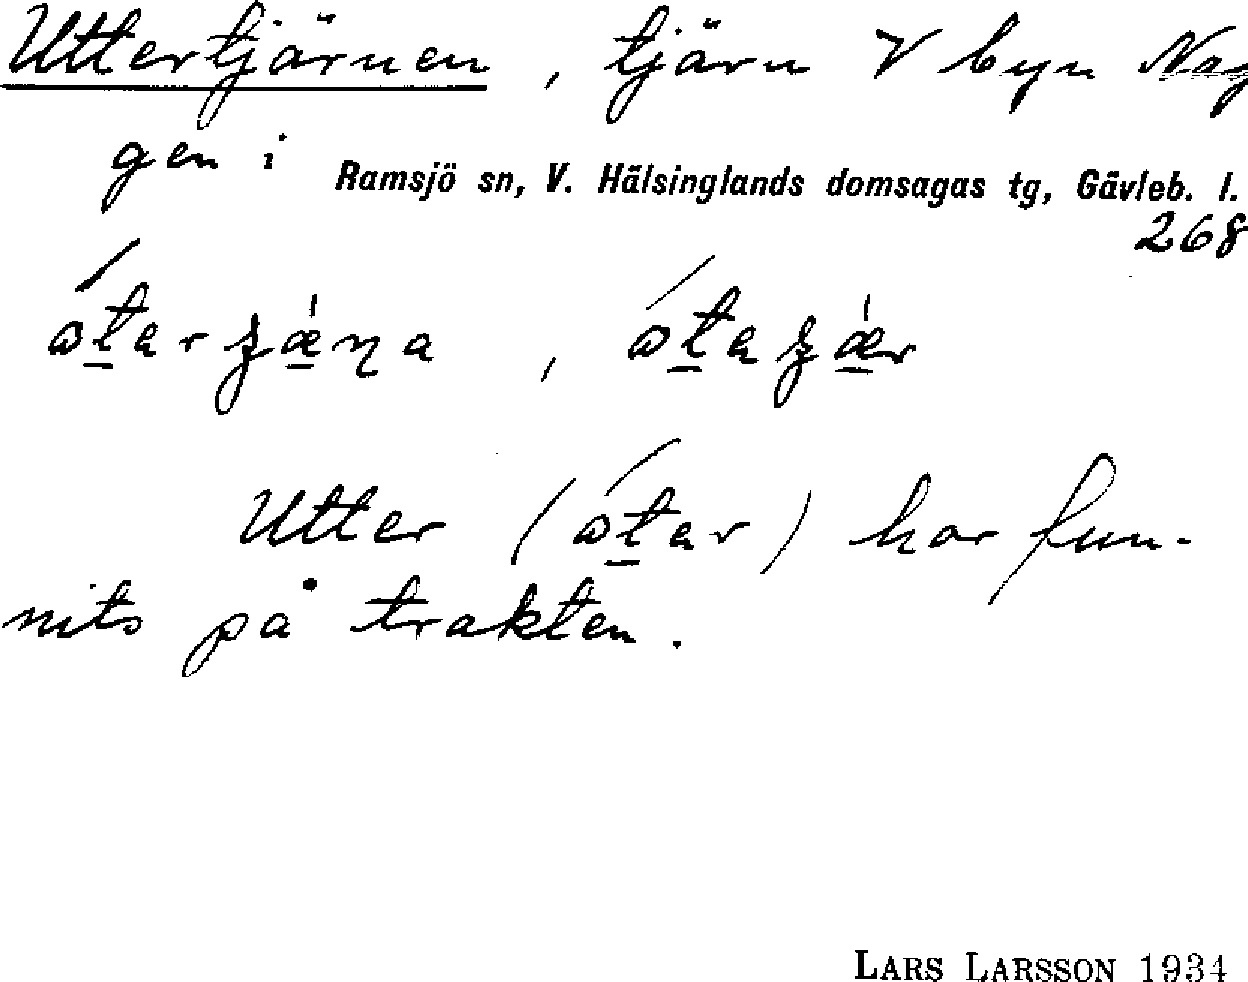 Uttertjärnen, tjärn V byn Nag
gen i Ramsjö sn, V. Hälsinglands domsagas tg, Gävleb. l.
268
Utter ( ) har fun-
nits på trakten.
LARS LARSSON 1934